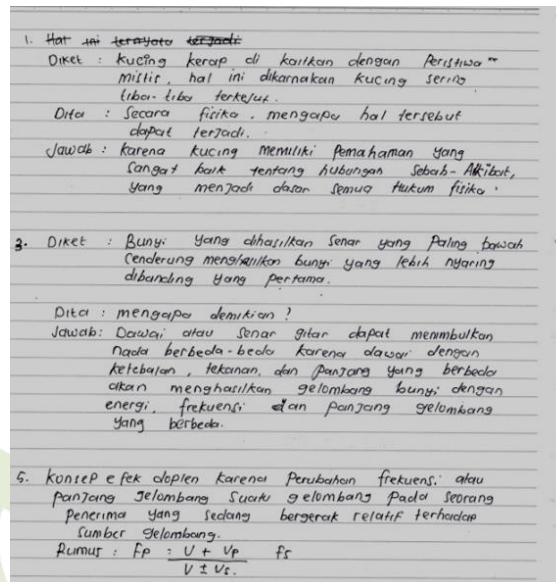 1. Hal ini ternyata terjadi
Diket : kucing kerap di kaitkan dengan Peristiwa"
mistis, hal ini dikarnakan kucing sering
tiba-tiba terkejut.
Dita : Secara fisika, mengapa hal tersebut
dapat terjadi.
Jawab : karena kucing memiliki Pemahaman yang
sangat baik tentang hubungan Sebab-Akibat,
yang menjadi dasar semua Hukum fisika.
3. Diket : Bunyi yang dihasilkan Senar yang Paling bawah
Cenderung menghasilkan bunyi yang lebih nyaring
dibanding yang pertama.
Dita : mengapa demikian ?
Jawab : Dawai atau Senar gitar dapat menimbulkan
nada berbeda-beda karena dawai dengan
ketebalan, tekanan, dan Panjang yang berbeda
akan menghasilkan gelombang bunyi dengan
energi, frekuensi dan panjang gelombang
yang berbeda.
5. Konsep efek doplen karena Perubahan frekuensi atau
panjang gelombang Suatu gelombang Pada Seorang
Penerima yang Sedang bergerak relatif terhadap
Sumber gelombang.
Rumus : Fp = V ± Vp fs
V ± Vs.